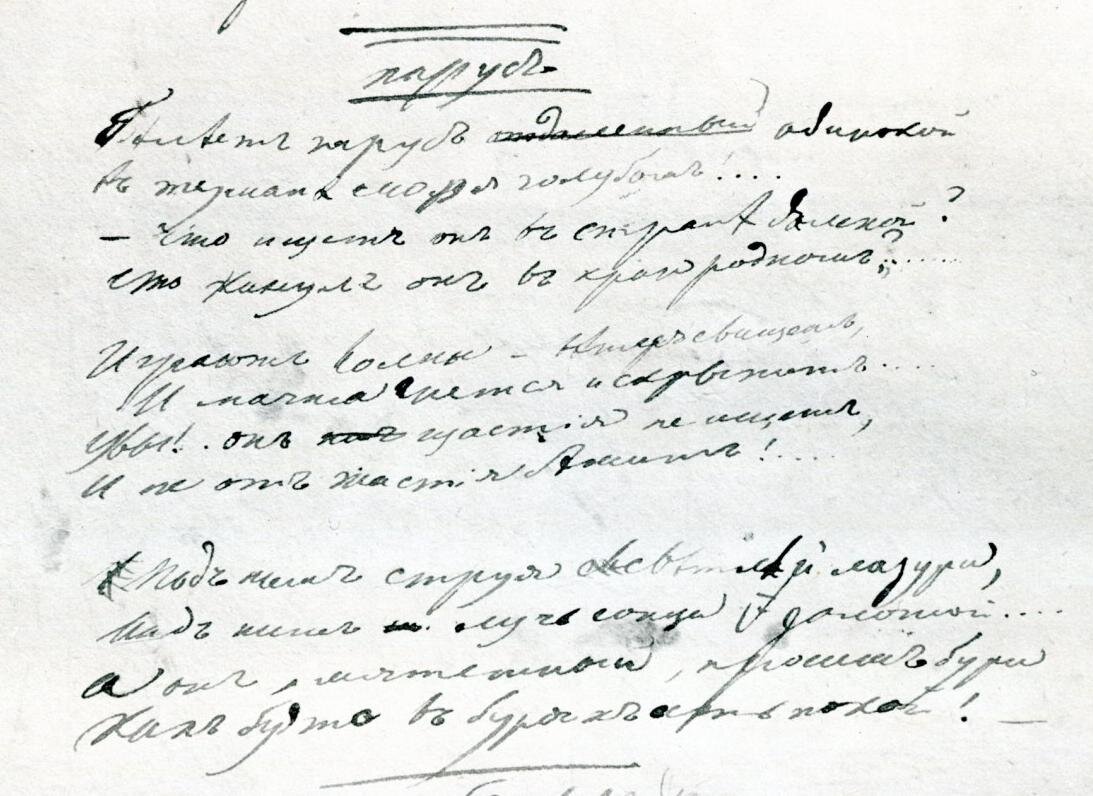 Парусъ
Бѣлѣетъ парусъ отдаленный одинокой
Въ туманѣ моря голубомъ!....
— Что ищетъ онъ въ странѣ далекой?
Что кинулъ онъ въ краю родномъ?......
Играютъ волны – вѣтеръ свищетъ,
И мачта гнется и скрыпитъ....
Увы!.. онъ щастія не ищетъ,
И не отъ щастія бѣжитъ!....
Подъ нимъ струя свѣтлѣй лазури,
Надъ нимъ лучь солнца золотой....
А онъ, мятежный, проситъ бури
Какъ будто въ буряхъ есть покой! —